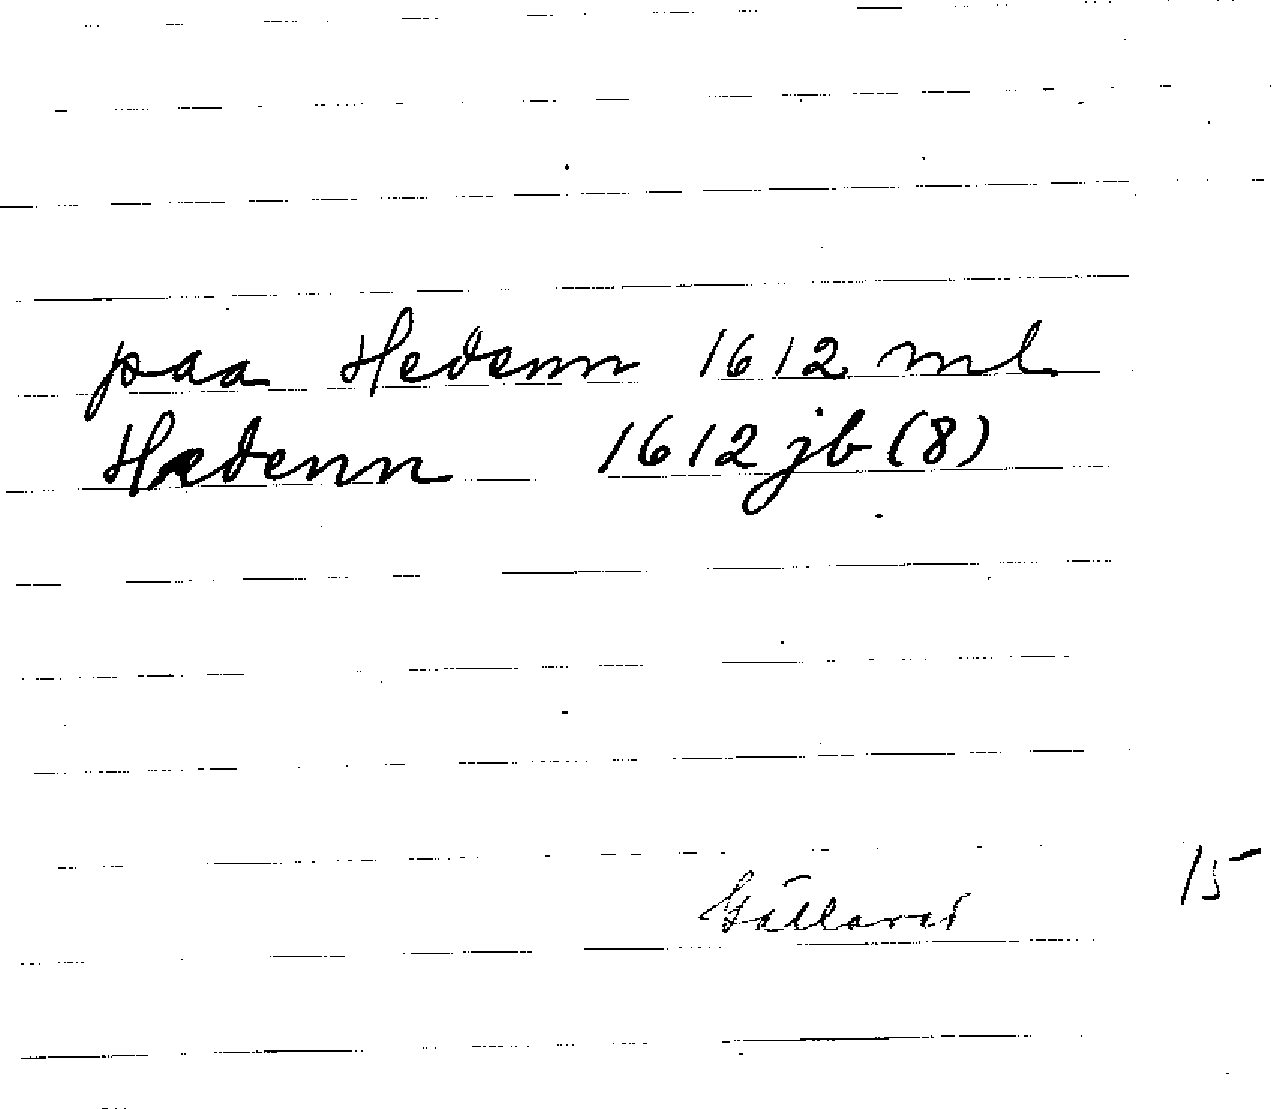 paa Hedenn 1612 ml
Hædenn 1612 jb (8)
15
Gällared